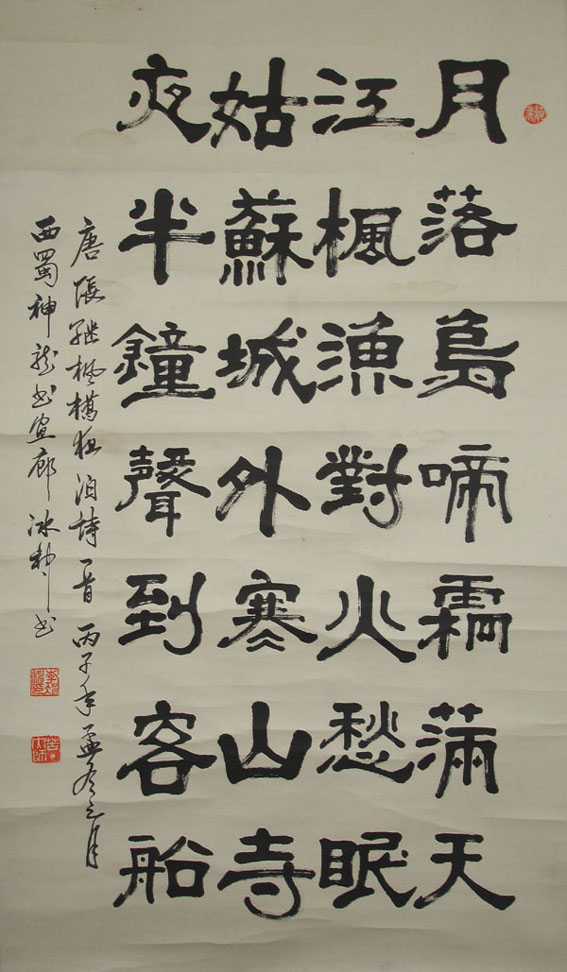 月落烏啼霜滿天
江楓漁對火愁眠
姑蘇城外寒山寺
夜半鐘聲到客船
唐張继枫橋夜泊詩一首 丙子年孟冬之月
西蜀神龙书画廊 冰 书